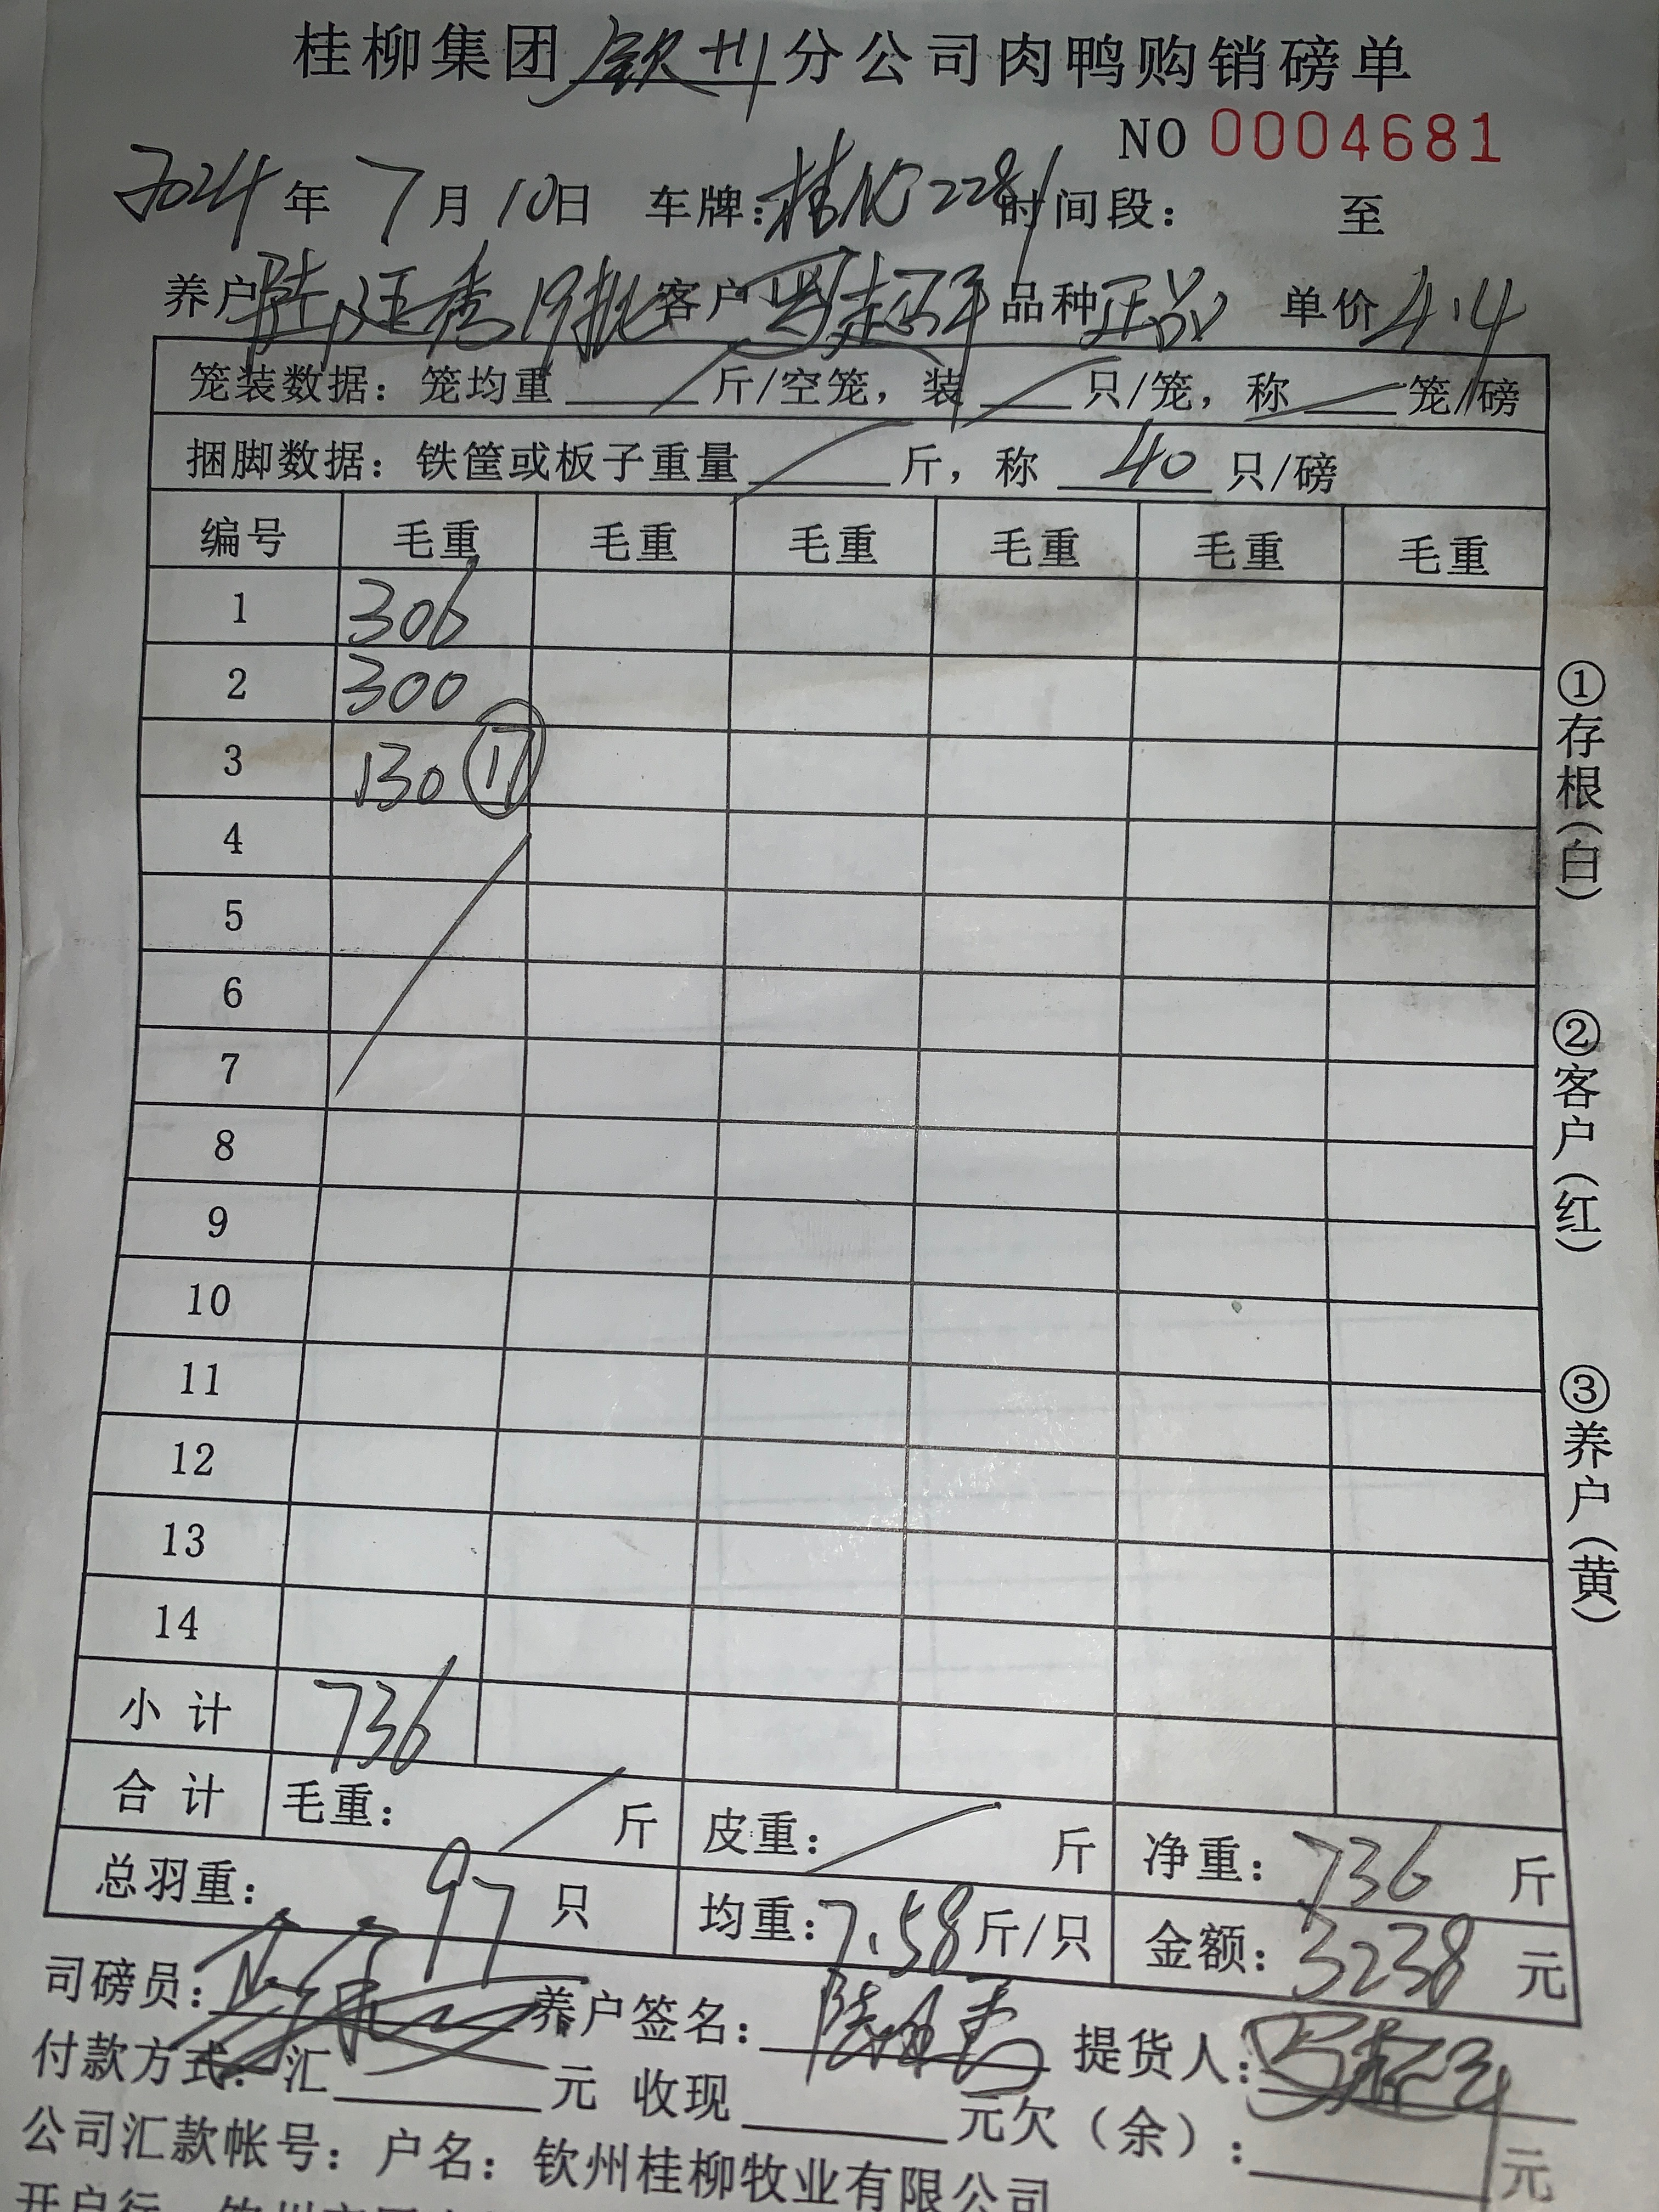 桂柳集团 钦州 分公司肉鸭购销磅单
NO 0004681
2024 年 7 月 10 日 车牌: 桂 2281 时间段: 至
养户 陆 秀 19批 客户 品种 正品 单价 4.4
笼装数据: 笼均重 斤/空笼, 装 只/笼, 称 笼/磅
捆脚数据: 铁筐或板子重量 斤, 称 40 只/磅
编号 毛重 毛重 毛重 毛重 毛重 毛重
1 306
2 300
3 130 ⑰
4
5
6
7
8
9
10
11
12
13
14
小计 736
合计 毛重: 斤 皮重: 斤 净重: 736 斤
总羽重: 97 只 均重: 7.58 斤/只 金额: 3238 元
司磅员: 养户签名: 提货人:
付款方式: 汇 元 收现 元欠(余): 元
公司汇款帐号: 户名: 钦州桂柳牧业有限公司
开户行
①存根(白)
②客户(红)
③养户(黄)